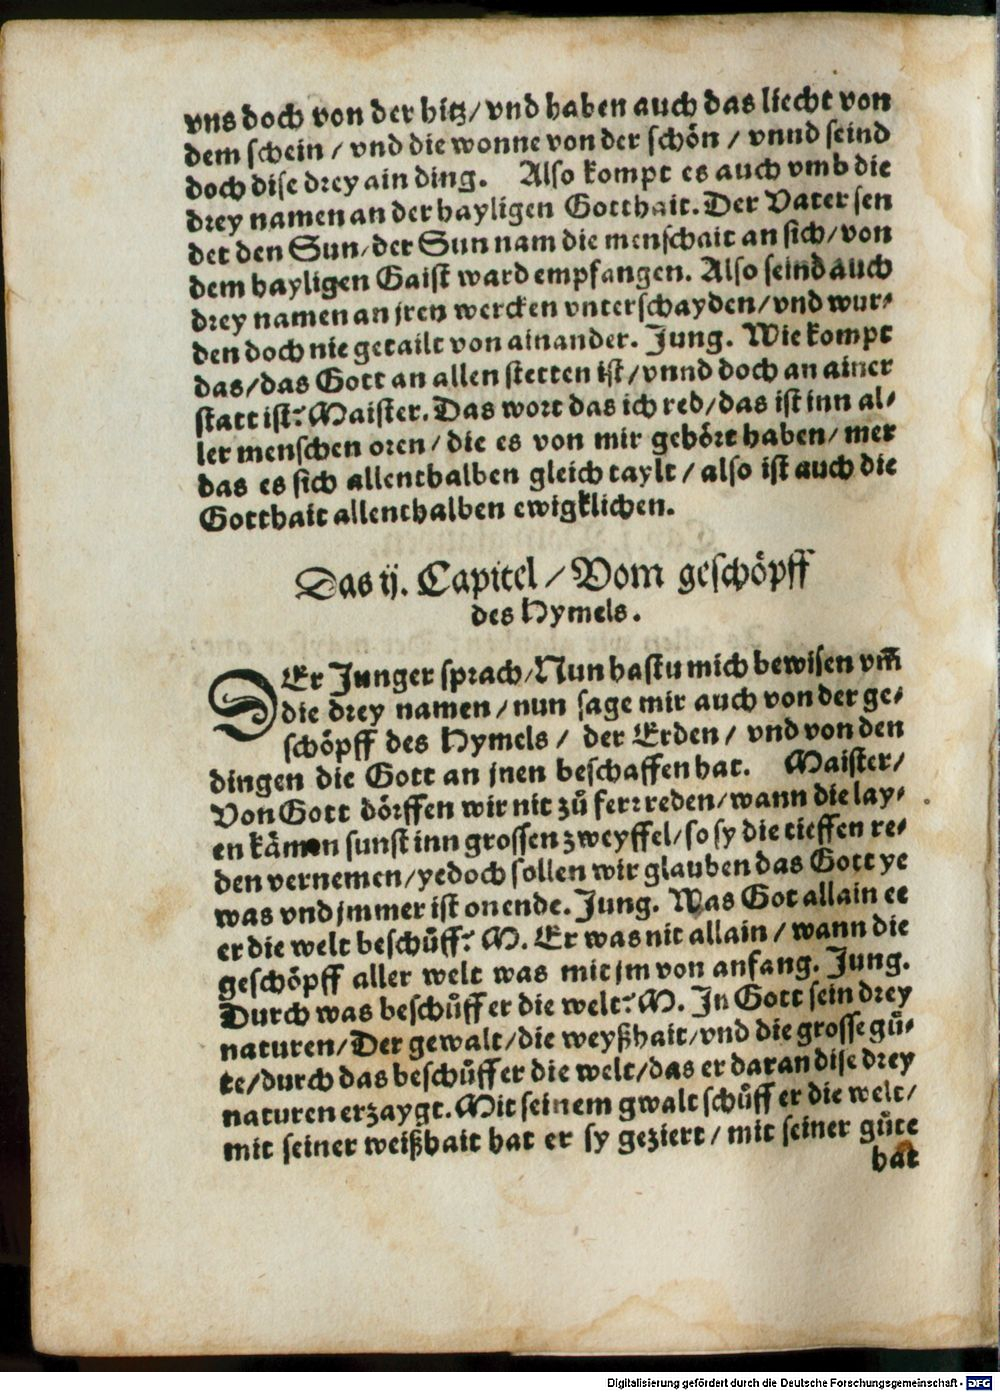 vns doch von der hitz/ vnd haben auch das liecht von
dem schein / vnd die wonne von der schön / vnnd seind
doch dise drey ain ding. Also kompt es auch vmb die
drey namen an der hayligen Gotthait. Der Vater sen
det den Sun/ der Sun nam die menschait an sich/ von
dem hayligen Gaist ward empfangen. Also seind auch
drey namen an jren wercken vnterschayden/ vnd wur⸗
den doch nie getailt von ainander. Jung. Wie kompt
das/ das Gott an allen stetten ist/ vnnd doch an ainer
statt ist? Maister. Das wort das ich red/ das ist inn al⸗
ler menschen oren/ die es von mir gehört haben/ mer
das es sich allenthalben gleich taylt / also ist auch die
Gotthait allenthalben ewigklichen.
Das ij. Capitel / Vom geschöpff
des Hymels.
DEr Junger sprach/ Nun hastu mich bewisen vm̃
die drey namen / nun sage mir auch von der ge⸗
schöpff des Hymels / der Erden / vnd von den
dingen die Gott an jnen beschaffen hat. Maister/
Von Gott dörffen wir nit zů ferr reden/ wann die lay⸗
en kämen sunst inn grossen zweyffel/ so sy die tieffen re⸗
den vernemen/ yedoch sollen wir glauben das Gott ye
was vnd jmmer ist on ende. Jung. Was Got allain ee
er die welt beschůff? M. Er was nit allain / wann die
geschöpff aller welt was mit jm von anfang. Jung.
Durch was beschůff er die welt? M. In Gott sein drey
naturen/ Der gewalt/ die weyßhait/ vnd die grosse gů⸗
te/ durch das beschůff er die welt/ das er daran dise drey
naturen erzaygt. Mit seinem gwalt schůff er die welt/
mit seiner weißhait hat er sy geziert / mit seiner gůte
hat
Digitalisierung gefördert durch die Deutsche Forschungsgemeinschaft - DFG